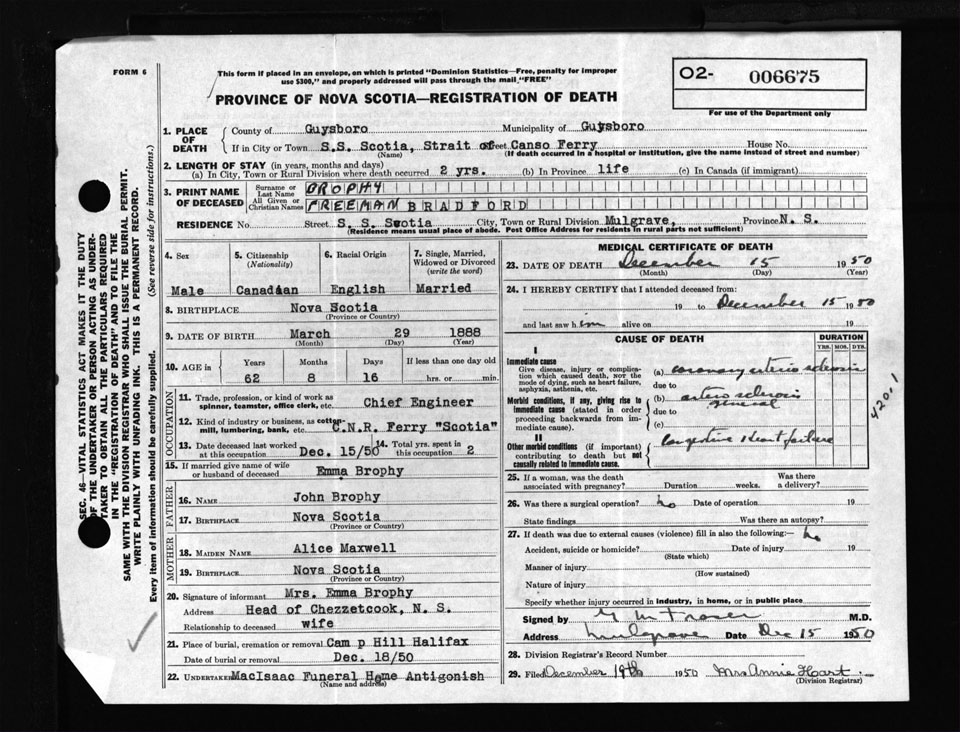 FORM 6
This form if placed in an envelope, on which is printed "Dominion Statistics—Free, penalty for improper
use $300," and properly addressed will pass through the mail "FREE"
PROVINCE OF NOVA SCOTIA—REGISTRATION OF DEATH
O2- 006675
For use of the Department only
SEC. 46—VITAL STATISTICS ACT MAKES IT THE DUTY
OF THE UNDERTAKER OR PERSON ACTING AS UNDER-
TAKER TO OBTAIN ALL THE PARTICULARS REQUIRED
IN THE "REGISTRATION OF DEATH" AND TO FILE THE
SAME WITH THE DIVISION REGISTRAR WHO SHALL ISSUE THE BURIAL PERMIT.
WRITE PLAINLY WITH UNFADING INK. THIS IS A PERMANENT RECORD.
Every item of information should be carefully supplied. (See reverse side for instructions.)
1. PLACE OF DEATH
County of Guysboro Municipality of Guysboro
If in City or Town S.S. Scotia, Strait of Street Canso Ferry House No.
(Name) (If death occurred in a hospital or institution, give the name instead of street and number)
2. LENGTH OF STAY (in years, months and days)
(a) In City, Town or Rural Division where death occurred 2 yrs. (b) In Province life (c) In Canada (if immigrant)
3. PRINT NAME OF DECEASED
Surname or Last Name BROPHY
All Given or Christian Names FREEMAN BRADFORD
RESIDENCE No. Street S. S. Scotia City, Town or Rural Division Mulgrave, Province N. S.
(Residence means usual place of abode. Post Office Address for residents in rural parts not sufficient)
4. Sex Male
5. Citizenship (Nationality) Canadian
6. Racial Origin English
7. Single, Married, Widowed or Divorced (write the word) Married
8. BIRTHPLACE Nova Scotia
(Province or Country)
9. DATE OF BIRTH March 29 1888
(Month) (Day) (Year)
10. AGE in Years Months Days If less than one day old
62 8 16 hrs. or min.
OCCUPATION
11. Trade, profession, or kind of work as spinner, teamster, office clerk, etc. Chief Engineer
12. Kind of industry or business, as cotton-mill, lumbering, bank, etc. C.N.R. Ferry "Scotia"
13. Date deceased last worked at this occupation Dec. 15/50 14. Total yrs. spent in this occupation 2
15. If married give name of wife or husband of deceased Emma Brophy
FATHER
16. NAME John Brophy
17. BIRTHPLACE Nova Scotia
(Province or Country)
MOTHER
18. MAIDEN NAME Alice Maxwell
19. BIRTHPLACE Nova Scotia
(Province or Country)
20. Signature of informant Mrs. Emma Brophy
Address Head of Chezzetcook, N. S.
Relationship to deceased wife
21. Place of burial, cremation or removal Cam p Hill Halifax
Date of burial or removal Dec. 18/50
22. UNDERTAKER MacIsaac Funeral Home Antigonish
(Name and address)
MEDICAL CERTIFICATE OF DEATH
23. DATE OF DEATH December 15 1950
(Month) (Day) (Year)
24. I HEREBY CERTIFY that I attended deceased from:
19 to December 15 1950
and last saw him alive on 19
CAUSE OF DEATH
DURATION
YRS. MOS. DYS.
I
Immediate cause
Give disease, injury or complication which caused death, NOT the mode of dying, such as heart failure, asphyxia, asthenia, etc.
(a) coronary arterio sclerosis
due to
Morbid conditions, if any, giving rise to immediate cause (stated in order proceeding backwards from immediate cause).
(b) arterio sclerosis general
due to
(c)
II
Other morbid conditions (if important) contributing to death but not causally related to immediate cause.
Congestive Heart failure
4200 1
25. If a woman, was the death associated with pregnancy? Duration weeks. Was there a delivery?
26. Was there a surgical operation? no Date of operation 19
State findings Was there an autopsy?
27. If death was due to external causes (violence) fill in also the following:— no
Accident, suicide or homicide? Date of injury 19
(State which)
Manner of injury
(How sustained)
Nature of injury
Specify whether injury occurred in industry, in home, or in public place
Signed by M Fraser M.D.
Address Mulgrave Date Dec 15 1950
28. Division Registrar's Record Number
29. Filed December 19th 1950 Mrs Annie Hart
(Division Registrar)